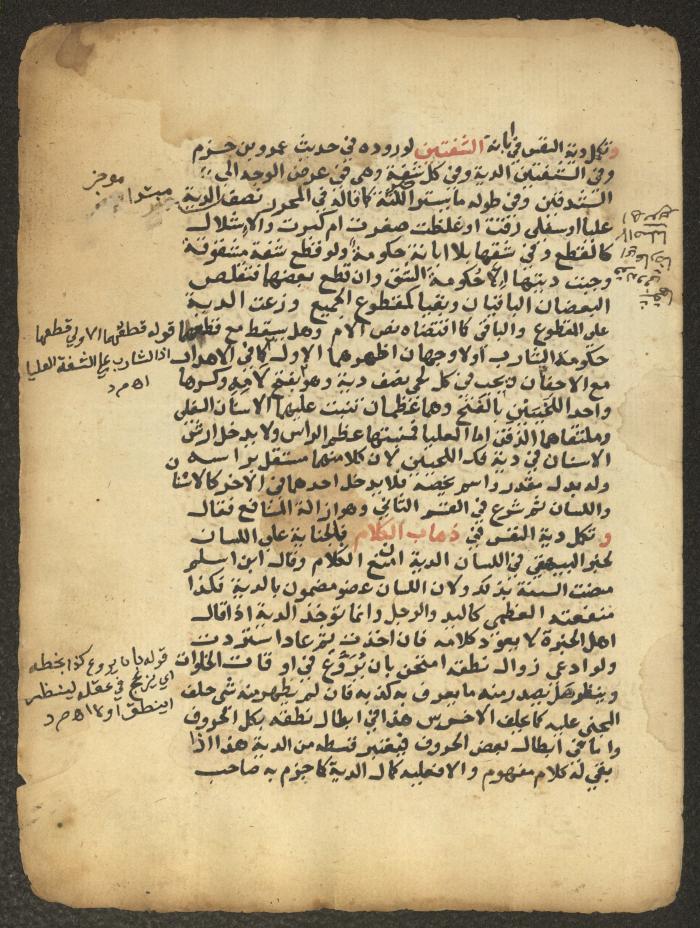 وتكمل دية النفس في ابانة الشفتين لوروده في حديث عمرو بن حزم
وفي الشفتين الدية وفي كل شفة وهي في عرض الوجه الى
الشدقين وفي طوله ما يستر اللثة كما قاله في المحرر نصف الدية
عليا او سفلى رقت او غلظت صغرت ام كبرت والاشلال
كالقطع وفي شقها بلا ابانة حكومة ولو قطع شفة مشقوقة
وجبت ديتها الا حكومة الشق وان قطع بعضها فتقلص
البعضان الباقيان وبقيا كمقطوع الجميع وزعت الدية
على المقطوع والباقي كما اقتضاه نص الام وهل يسقط مع قطعهما
حكومة الشارب اولا وجهان اظهرهما الاول كما في الاهداب
مع الاجفان ويجب في كل لحي نصف دية وهو بفتح لامه وكسرها
واحد اللحيين بالفتح وهما عظمان تنبت عليهما الاسنان السفلى
وملتقاهما الذقن اما العليا فمنبتها عظم الراس ولا يدخل ارش
الاسنان في دية فك اللحيين لان كلا منهما مستقل براسه
وله بدل مقدر واسم يخصه فلا يدخل احدهما في الاخر كالاسنان
واللسان ثم شرع في القسم الثاني وهو ازالة المنافع فقال
وتكمل دية النفس في ذهاب الكلام في الجناية على اللسان
لخبر البيهقي في اللسان الدية ان منع الكلام وقال ابن اسلم
مضت السنة بذلك ولان اللسان عضو مضمون بالدية فكذا
منفعته العظمى كاليد والرجل وانما تؤخذ الدية اذا قال
اهل الخبرة لا يعود كلامه فان اخذت ثم عاد استردت
ولو ادعى زوال نطقه امتحن بان يروع في اوقات الخلوات
وينظر هل يصدر منه ما يعرف به كذبه فان لم يظهر منه شي حلف
المجني عليه كما يحلف الاخرس هذا في ابطال نطقه بكل الحروف
واما في ابطال بعض الحروف فيعتبر قسطه من الدية هذا اذا
بقي له كلام مفهوم والا فعليه كمال الدية كما جزم به صاحب
مبتدا موخر
قوله قطعهما الاولى قطعها
اذ الشارب على الشفة العليا
اه م د
قوله بان يروع كذا بخطه
اي يزعج في عقله لينظر
اينطق او لا اه م د